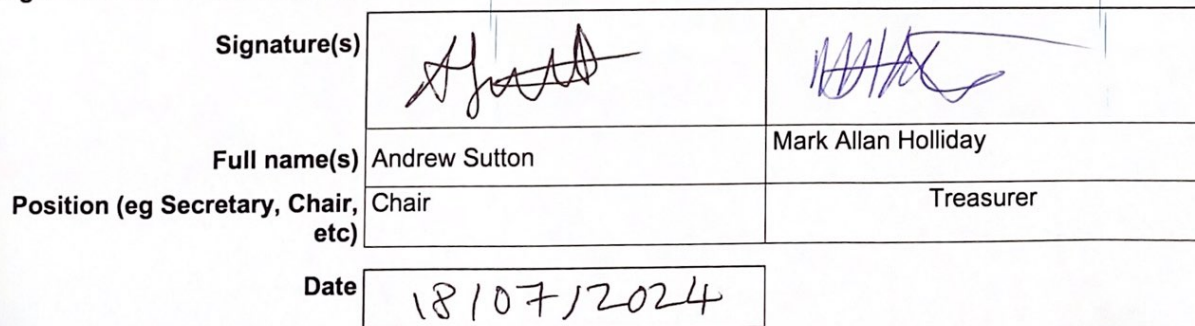 Signature(s)
Full name(s) Andrew Sutton Mark Allan Holliday
Position (eg Secretary, Chair, etc) Chair Treasurer
Date 18/07/2024